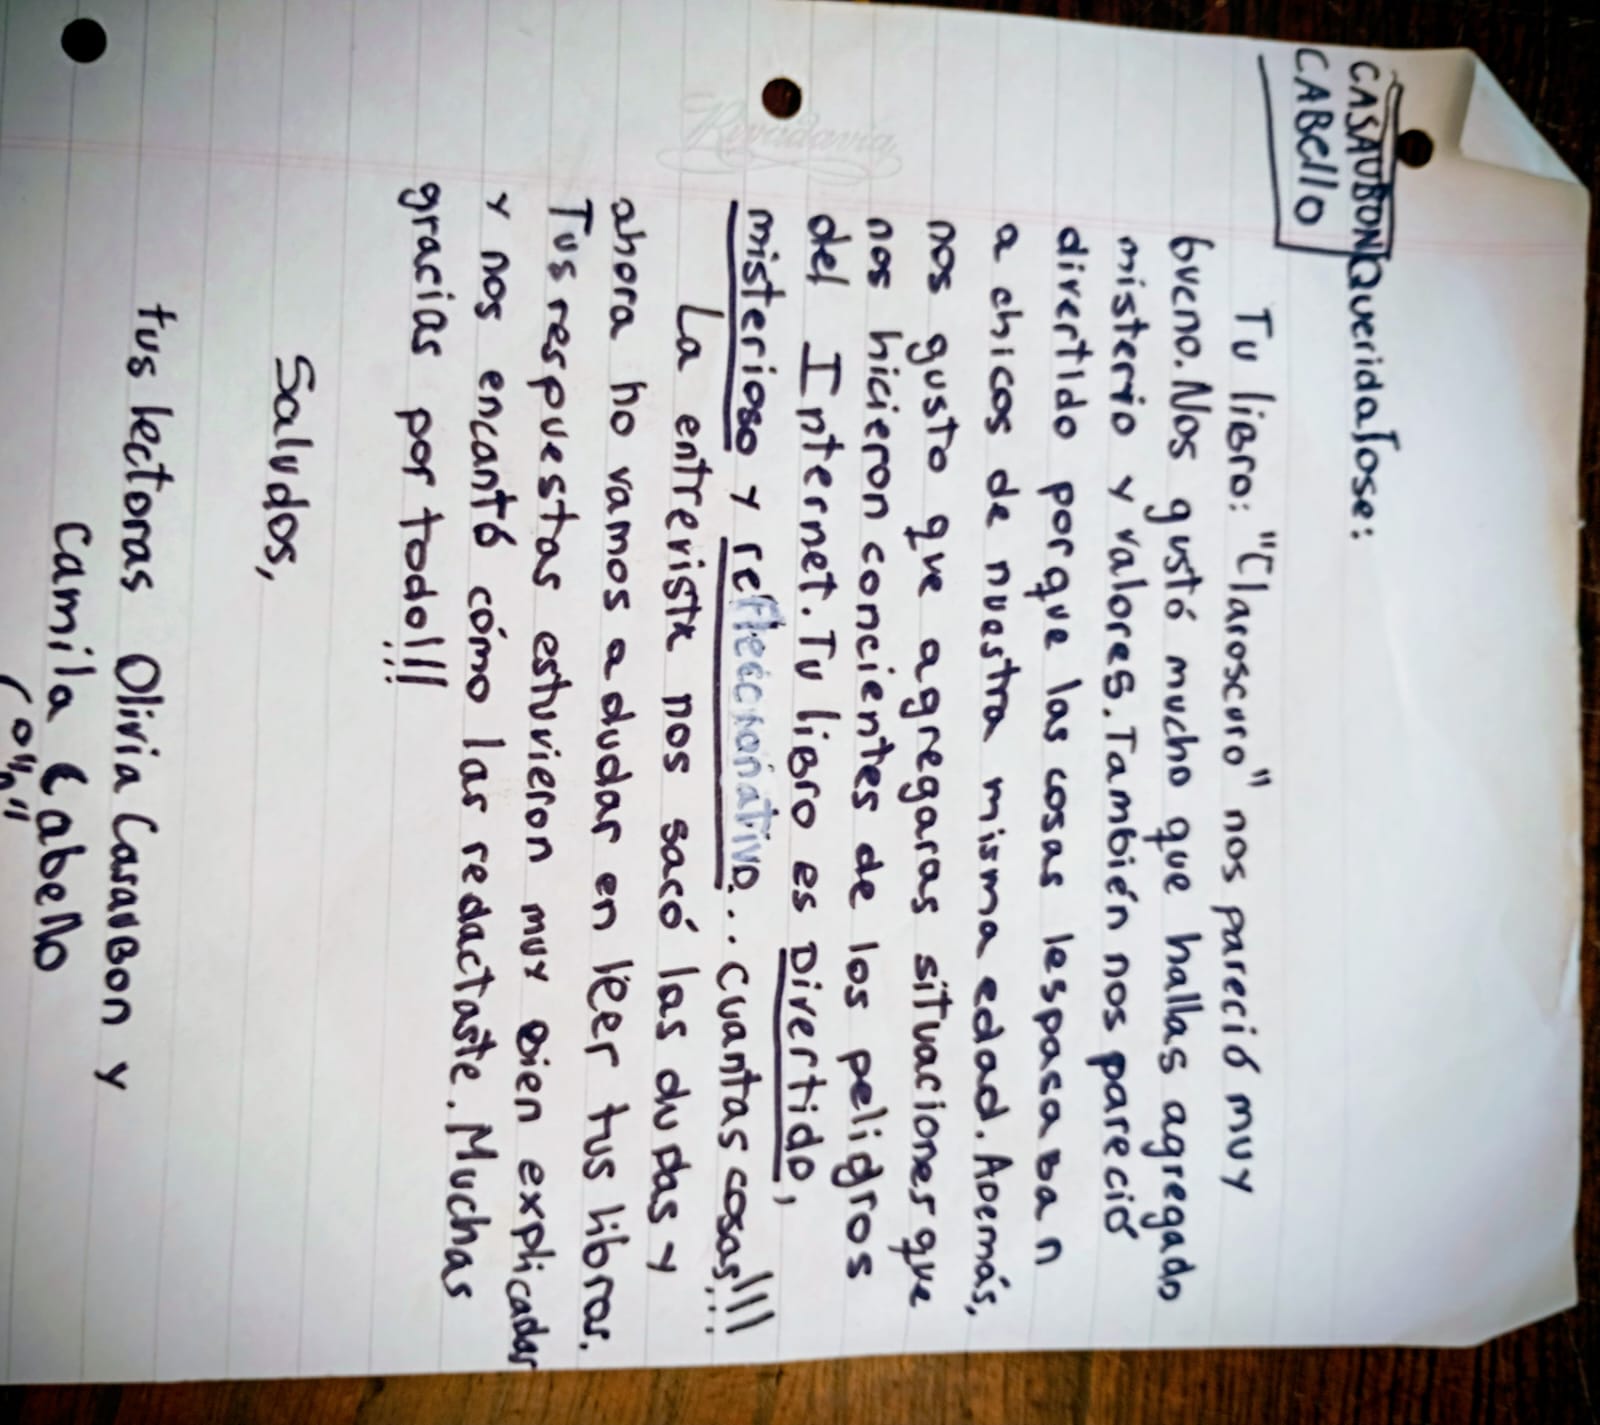 CASAUBON
CABello
Querida Jose:
Tu libro: "Claroscuro" nos pareció muy
bueno. Nos gustó mucho que hallas agregado
misterio y valores. También nos pareció
divertido porque las cosas les pasaban
a chicos de nuestra misma edad. Además,
nos gusto que agregaras situaciones que
nos hicieron concientes de los peligros
del Internet. Tu libro es Divertido,
misterioso y refleccionativo... cuantas cosas!!!
La entrevista nos sacó las dudas y
ahora no vamos a dudar en leer tus libros.
Tus respuestas estuvieron muy bien explicadas
y nos encantó cómo las redactaste. Muchas
gracias por todo!!!
Saludos,
tus lectoras Olivia Casaubon y
Camila Cabello
Rivadavia